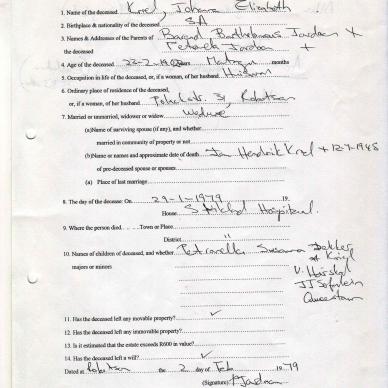 1. Name of the deceased Kriel, Johanna Elizabeth
2. Birthplace & nationality of the deceased SA
3. Names & Addresses of the Parents of Barend Bartholomeus Jordaan +
the deceased Jordaan +
4. Age of the deceased years months
5. Occupation in life of the deceased, or, if a woman, of her husband
6. Ordinary place of residence of the deceased,
or, if a woman, of her husband 31, Robertson
7. Married or unmarried, widower or widow Widow
(a)Name of surviving spouse (if any), and whether
married in community of property or not
(b)Name of names and approximate date of death Jan Hendrik Kriel +
of pre-deceased spouse or spouses
(a) Place of last marriage
8. The day of the decease: On 29-1-1979 19
House Hospital
9. Where the person died Town or Place
District "
10. Names of children of deceased, and whether Petronella Susanna
majors or minors Kriel
V.
JJ
Queenstown
11. Has the deceased left any movable property? ✓
12. Has the deceased left any immovable property?
13. Is it estimated that the estate exceeds R600 in value?
14. Has the deceased left a will? ✓
Dated at Robertson the 2 day of Feb 1979
(Signature) Jordaan